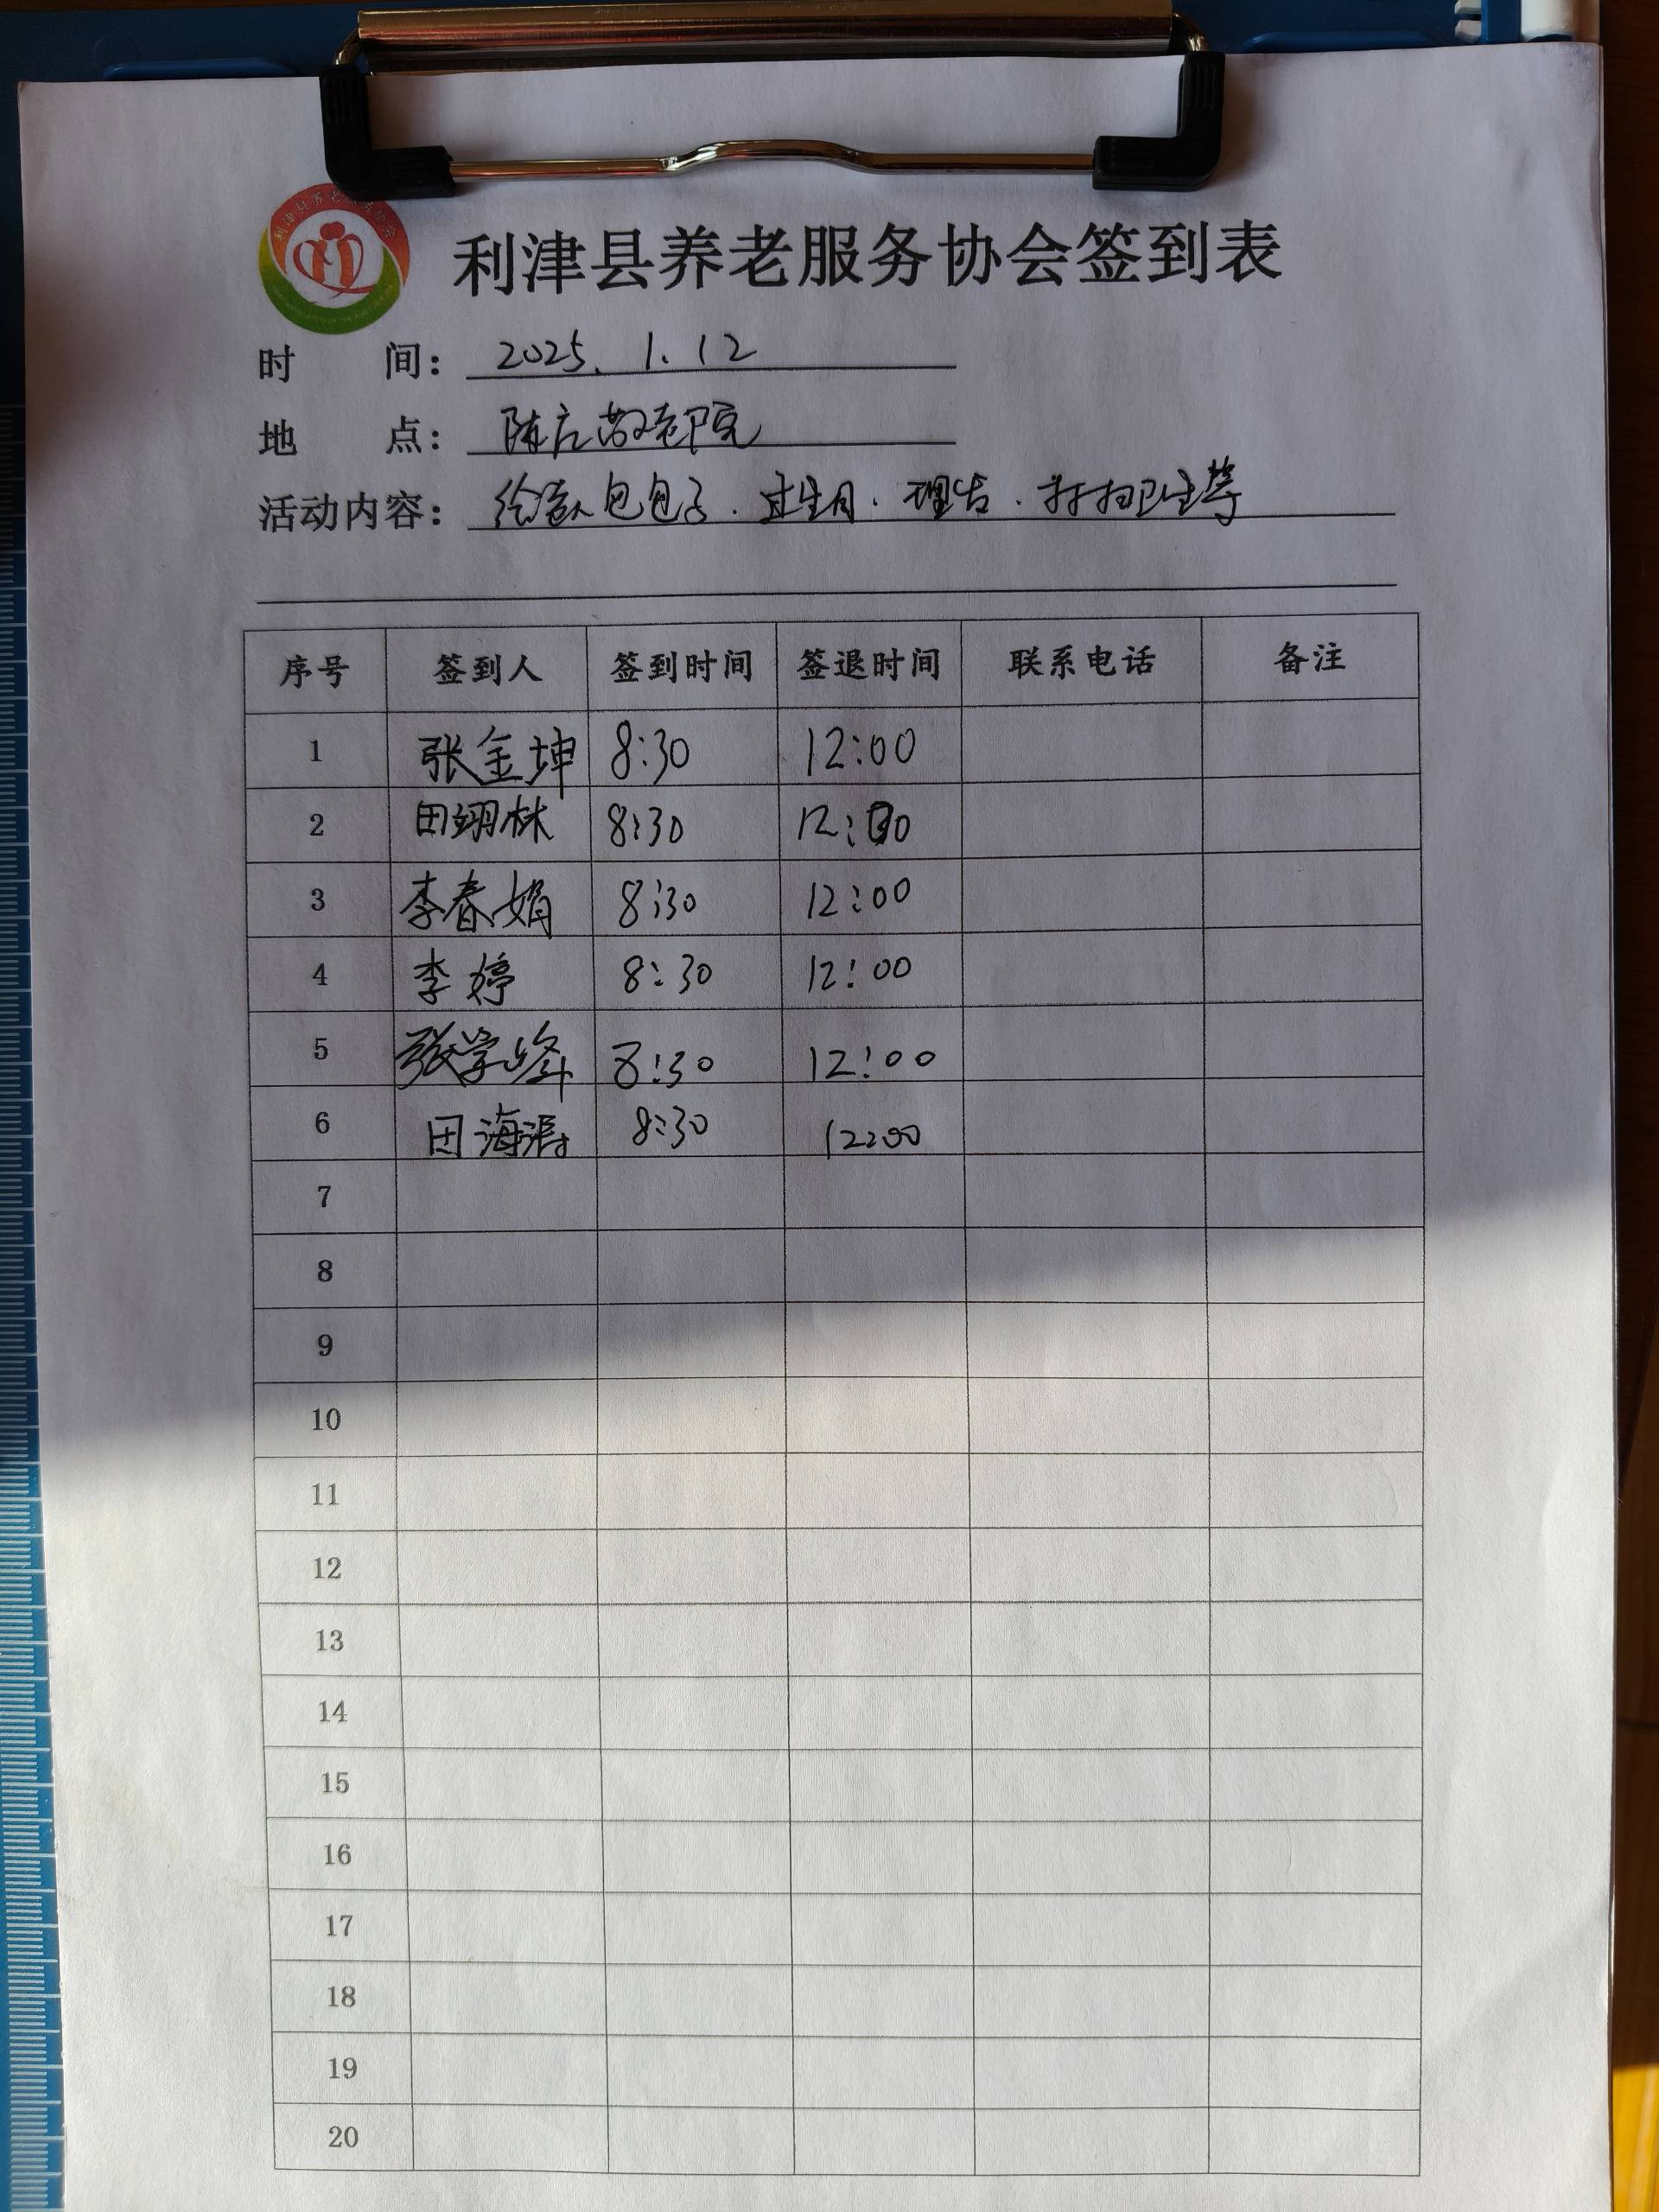 利津县养老服务协会
利津县养老服务协会签到表
时 间: 2025. 1. 12
地 点: 陈庄敬老院
活动内容: 给老人包包子. 过生日. 理发. 打扫卫生等
序号 签到人 签到时间 签退时间 联系电话 备注
1 张金坤 8:30 12:00
2 田翊林 8:30 12:00
3 李春娟 8:30 12:00
4 李婷 8:30 12:00
5 张学峰 8:30 12:00
6 田海涛 8:30 12:00
7
8
9
10
11
12
13
14
15
16
17
18
19
20